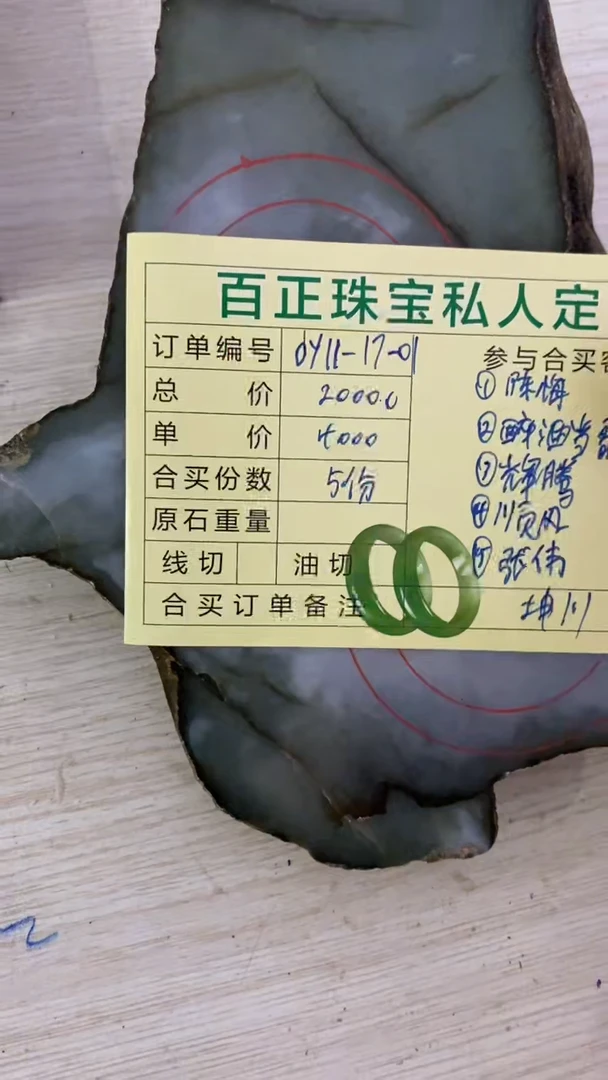 百正珠宝私人定
订单编号 0Y11-17-01
参与合买客
总价 20000
① 陈梅
单价 4000
② 醉酒当歌
合买份数 5份
③ 辉腾
原石重量
④ 川页风
线切 油切
⑤ 张伟
合买订单备注
坤川